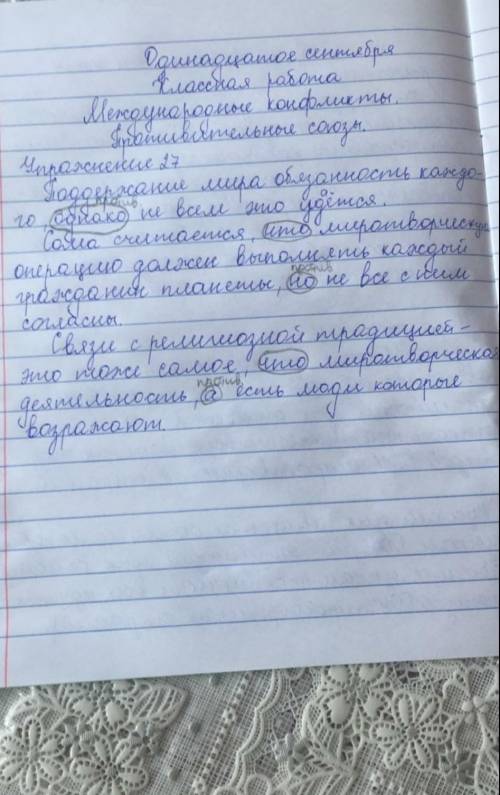 Одинадцатое сентября
Классная работа
Международные конфликты.
Противительные союзы.
Упражнение 27
Поддержание мира обязанность каждо-
против
го, однако не всем это удётся.
Сама считается, что миротворческую
операцию должен выполнять каждый
против
гражданин планеты, но не все с ним
согласны.
Связи с религиозной традицией-
это тоже самое, что миротворческая
против
деятельность, а есть люди которые
возражают.